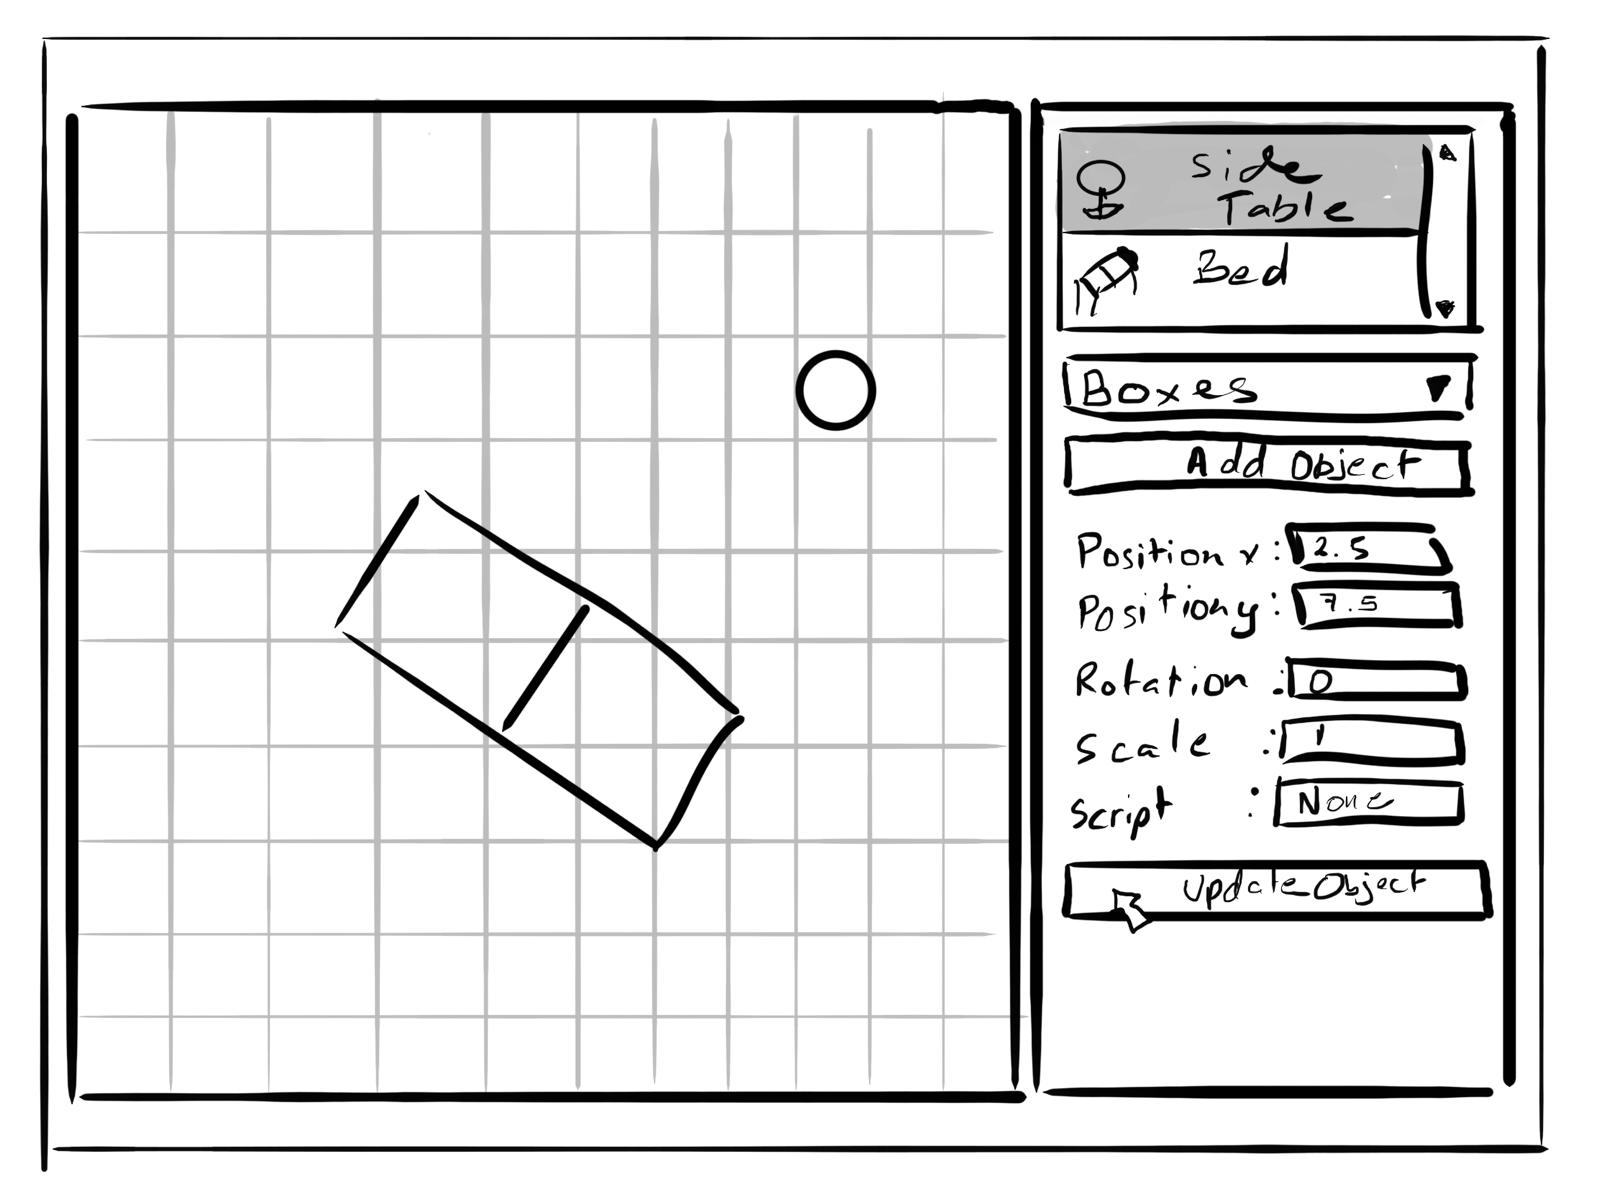 Side
Table
Bed
Boxes
Add Object
Position x : 2.5
Position y : 7.5
Rotation : 0
Scale : 1
Script : None
Update Object